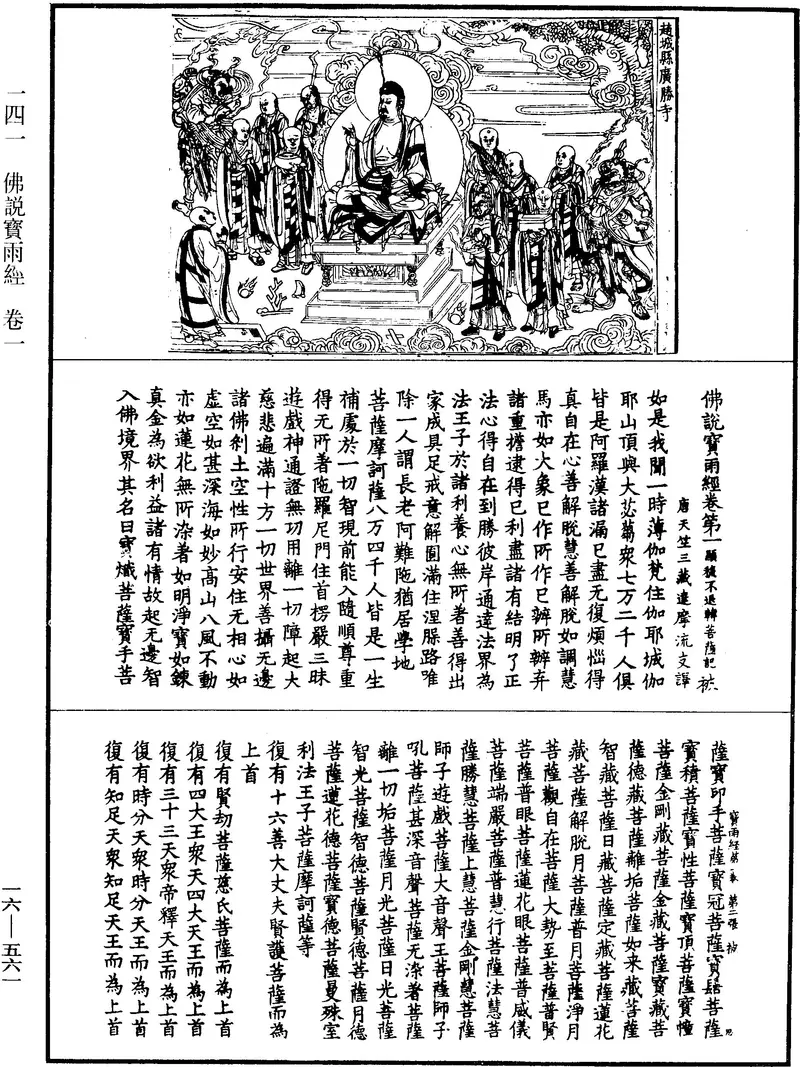 一四一　佛説寶雨經　卷一
趙城縣廣勝寺
佛説寶雨經卷第一 顯授不退轉菩薩記 祓
唐天竺三藏達摩流支譯
如是我聞一時薄伽梵住伽耶城伽
耶山頂與大苾蒭衆七万二千人俱
皆是阿羅漢諸漏已盡无復煩惱得
真自在心善解脫慧善解脫如調慧
馬亦如大象已作所作已辦所辦弃
諸重擔逮得已利盡諸有結明了正
法心得自在到勝彼岸通達法界為
法王子於諸利養心無所著善得出
家成具足戒意解圓滿住涅槃路唯
除一人謂長老阿難陁猶居學地
菩薩摩訶薩八万四千人皆是一生
補處於一切智現前能入隨順尊重
得无所著陁羅尼門住首楞嚴三昧
遊戲神通證無功用離一切障起大
慈悲遍滿十方一切世界善攝无邊
諸佛刹土空性所行安住无相心如
虛空如甚深海如妙高山八風不動
亦如蓮花無所染著如明淨寶如鍊
真金為欲利益諸有情故起无邊智
入佛境界其名曰寶熾菩薩寶手菩
薩寶印手菩薩寶冠菩薩寶髻菩薩
寶雨經第一卷　第二張　祓
寶積菩薩寶性菩薩寶頂菩薩寶幢
菩薩金剛藏菩薩金藏菩薩寶藏菩
薩德藏菩薩離垢菩薩如来藏菩薩
智藏菩薩日藏菩薩定藏菩薩蓮花
藏菩薩解脫月菩薩普月菩薩淨月
菩薩觀自在菩薩大勢至菩薩普賢
菩薩普眼菩薩蓮花眼菩薩普威儀
菩薩端嚴菩薩普慧行菩薩法慧菩
薩勝慧菩薩上慧菩薩金剛慧菩薩
師子遊戲菩薩大音聲王菩薩師子
吼菩薩甚深音聲菩薩无染著菩薩
離一切垢菩薩月光菩薩日光菩薩
智光菩薩智德菩薩賢德菩薩月德
菩薩蓮花德菩薩寶德菩薩曼殊室
利法王子菩薩摩訶薩等
復有十六善大丈夫賢護菩薩而為
上首
復有賢劫菩薩慈氏菩薩而為上首
復有四大王衆天四大天王而為上首
復有三十三天衆帝釋天王而為上首
復有時分天衆時分天王而為上首
復有知足天衆知足天王而為上首
一六—五六一